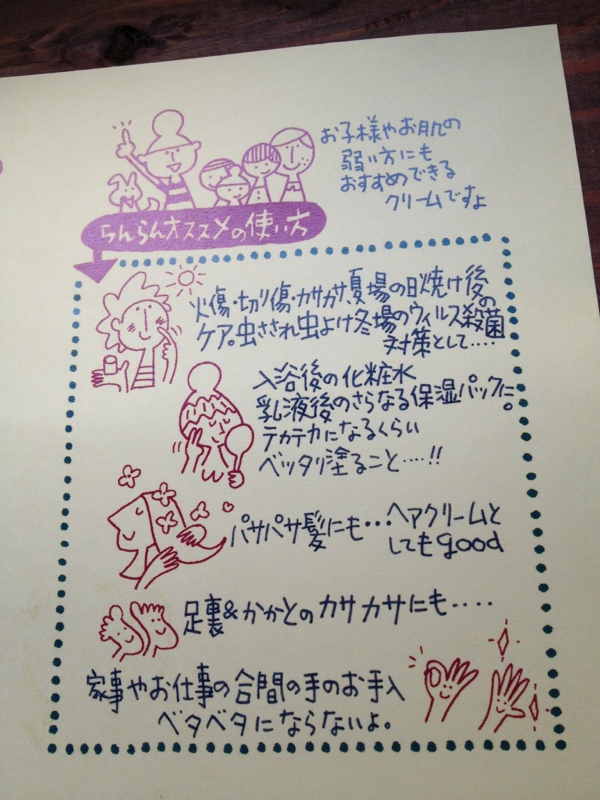 お子様やお肌の
弱い方にも
おすすめできる
クリームですよ
らんらんオススメの使い方
火傷・切り傷・カサカサ、夏場の日焼け後の
ケア。虫さされ虫よけ冬場のウィルス殺菌
対策として....
入浴後の化粧水
乳液後のさらなる保湿パックに。
テカテカになるくらい
ベッタリ塗ること....!!
パサパサ髪にも...ヘアクリームと
してもgood
足裏&かかとのカサカサにも....
家事やお仕事の合間の手のお手入
ベタベタにならないよ。